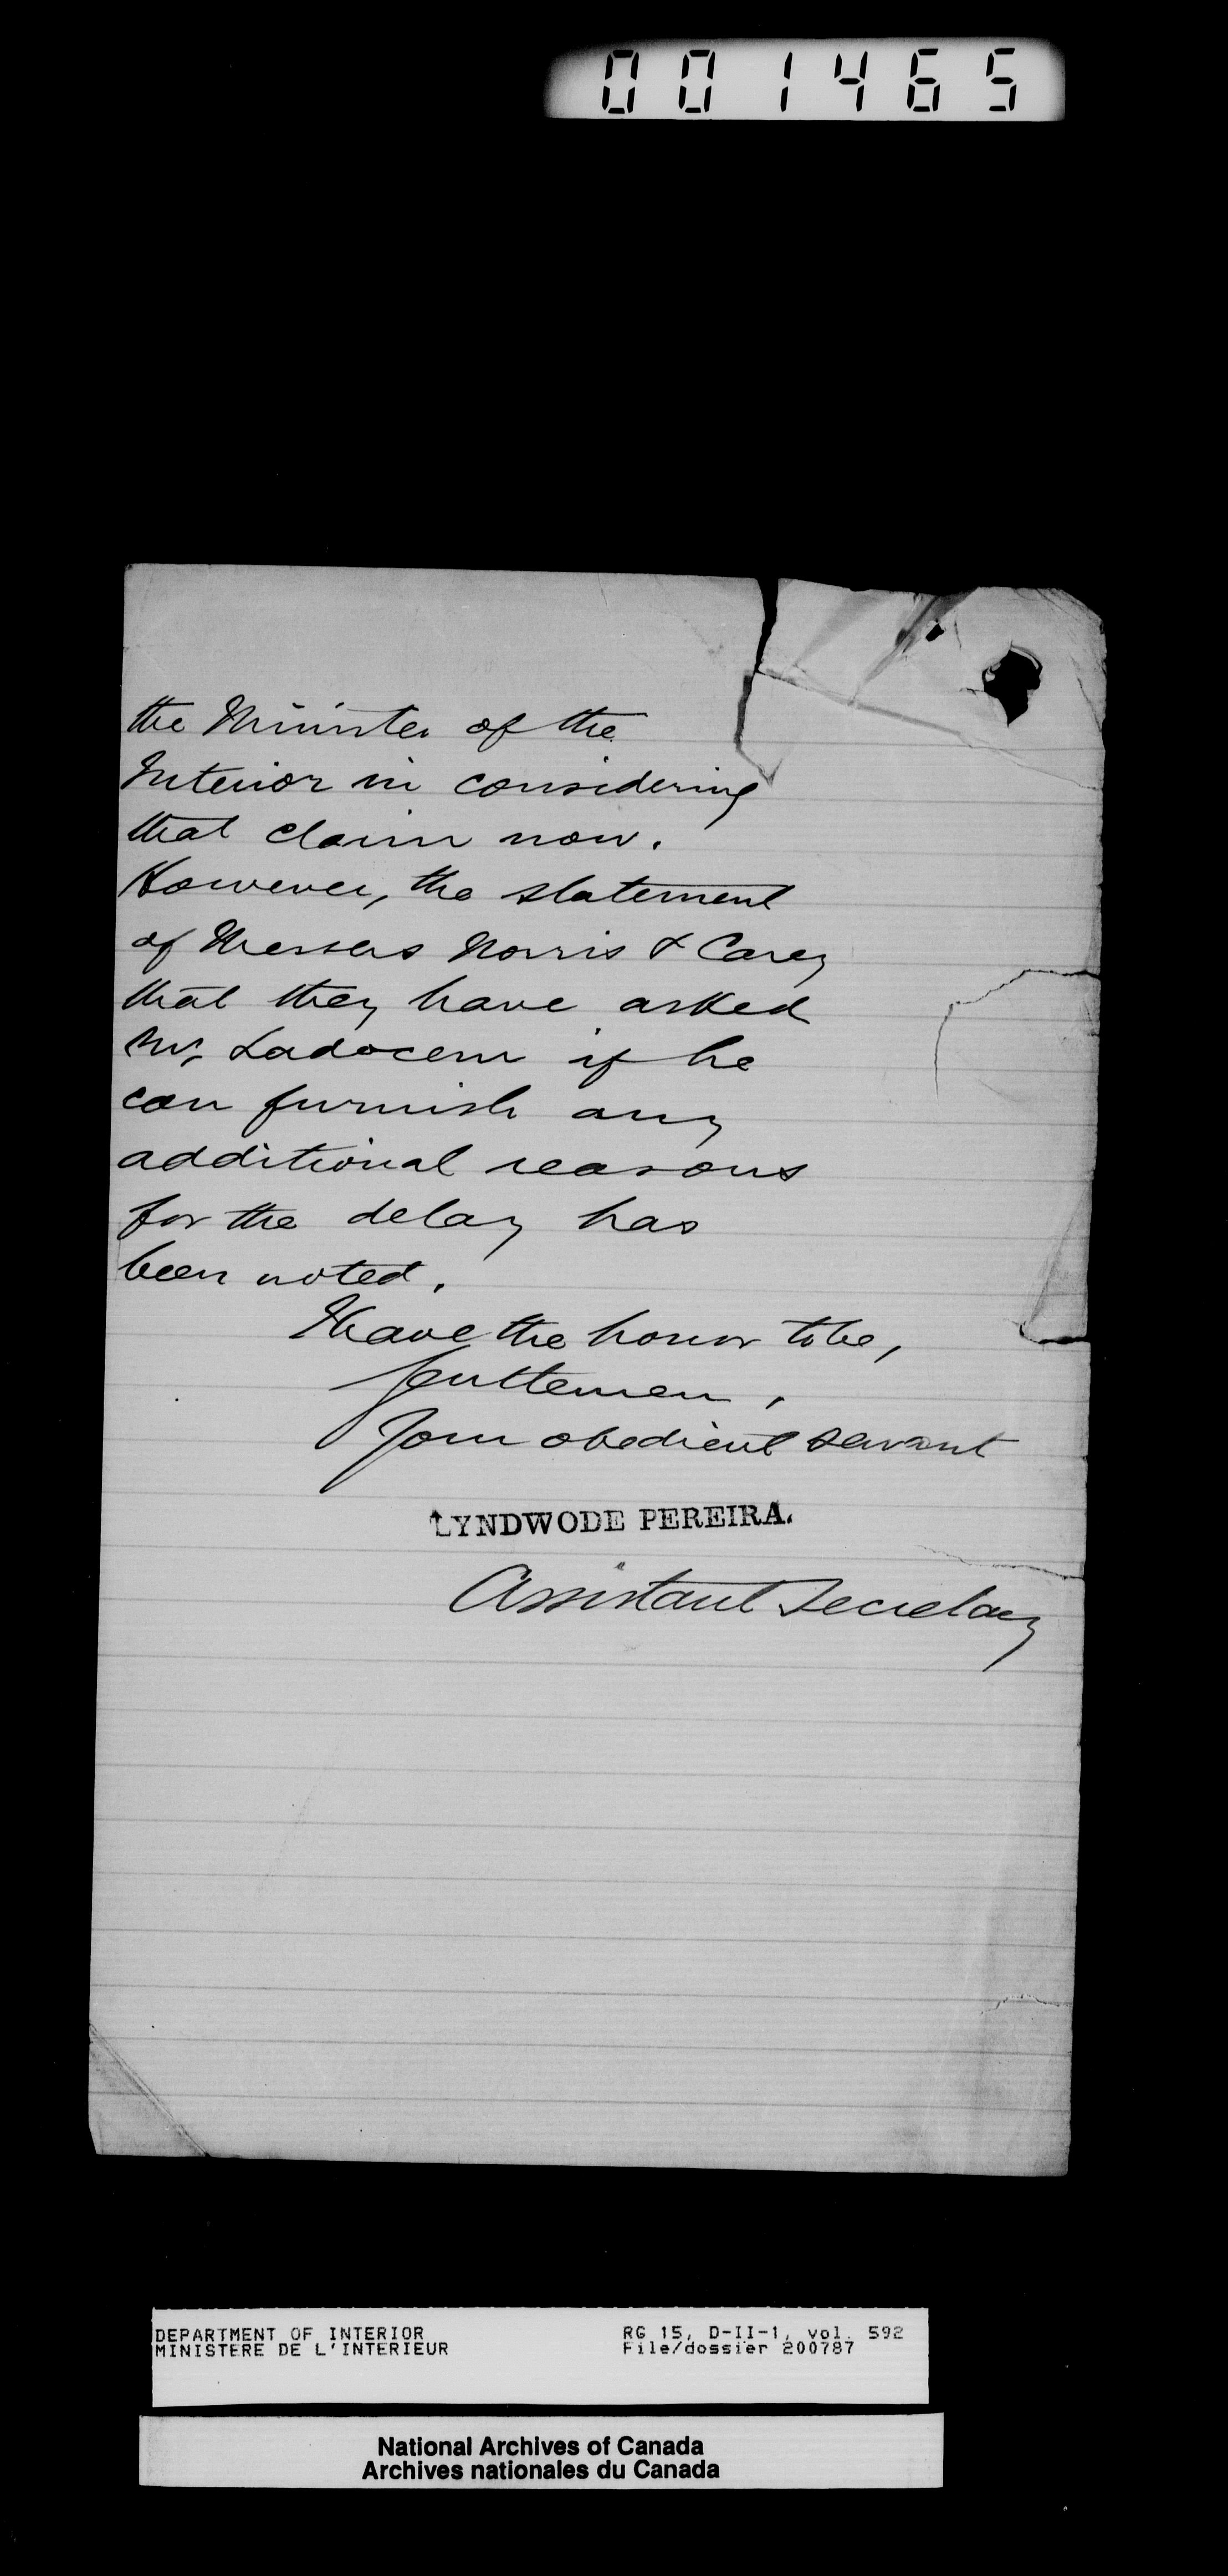 001465
the Minister of the
Interior in considering
that claim now.
However, the statement
of Messers Norris & Carey
that they have asked
Mr. Ladoceur if he
can furnish any
additional reasons
for the delay has
been noted.
I have the honor to be,
Gentlemen,
Your obedient servant
LYNDWODE PEREIRA.
Assistant Secretary
DEPARTMENT OF INTERIOR RG 15, D-II-1, vol. 592
MINISTERE DE L'INTERIEUR File/dossier 200787
National Archives of Canada
Archives nationales du Canada